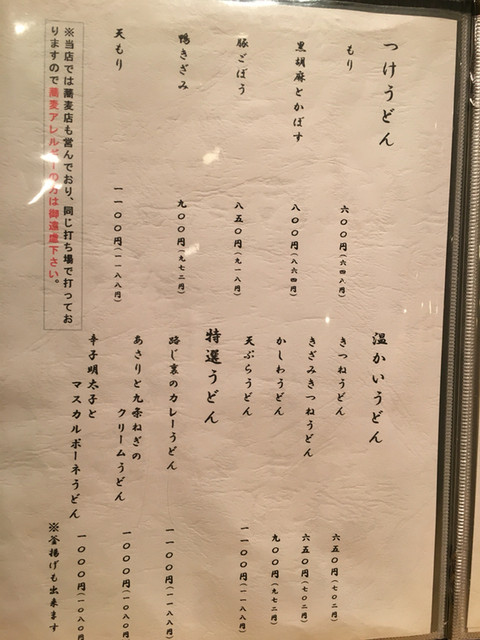 つけうどん
もり 六〇〇円(六四八円)
黒胡麻とかぼす 八〇〇円(八六四円)
豚ごぼう 八五〇円(九一八円)
鴨きざみ 九〇〇円(九七二円)
天もり 一一〇〇円(一一八八円)
※当店では蕎麦店も営んでおり、同じ打ち場で打ってお
りますので蕎麦アレルギーの方は御遠慮下さい。
温かいうどん
きつねうどん 六五〇円(七〇二円)
きざみきつねうどん 六五〇円(七〇二円)
かしわうどん 九〇〇円(九七二円)
天ぷらうどん 一一〇〇円(一一八八円)
特選うどん
路じ裏のカレーうどん 一一〇〇円(一一八八円)
あさりと九条ねぎの
クリームうどん 一〇〇〇円(一〇八〇円)
辛子明太子と
マスカルポーネうどん 一〇〇〇円(一〇八〇円)
※釜揚げも出来ます